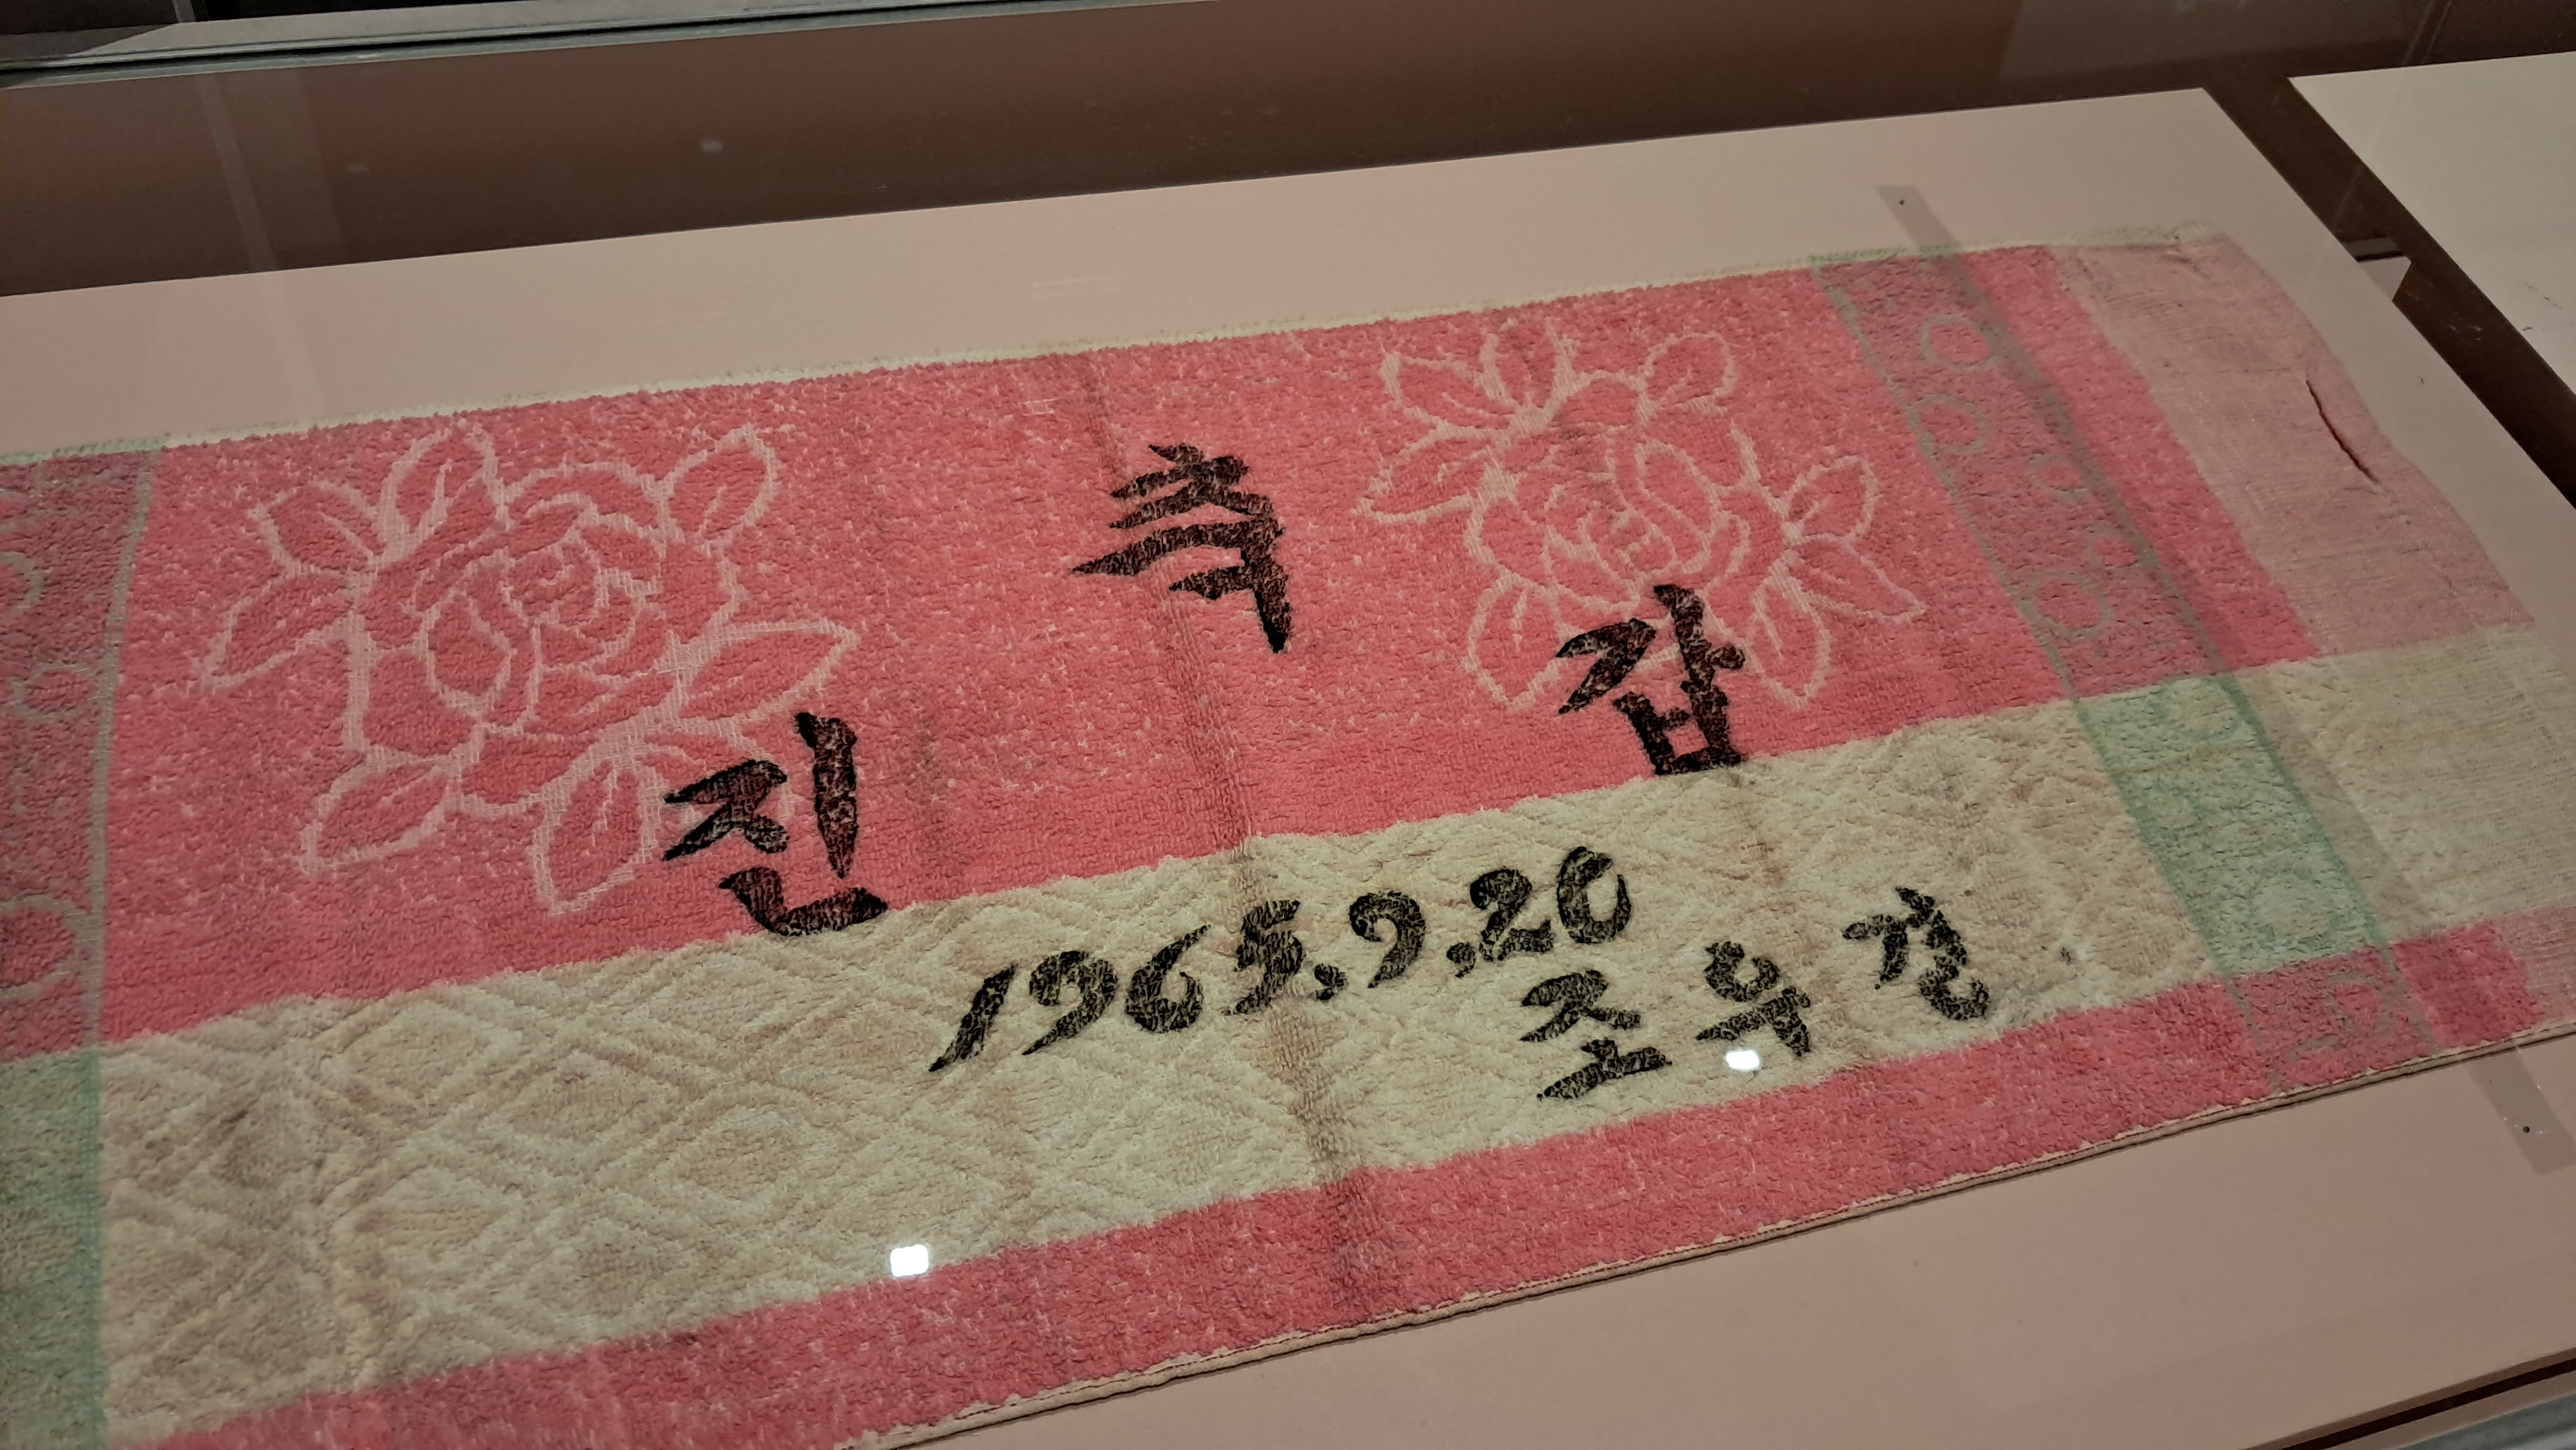 축
진 갑
1965.9.20
조우경